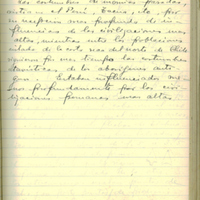 las costumbres de momias pasadas,
entre el Perú, hacia, la des-
aparecieron mas profundo de in-
fluencias de las civilizaciones mas
altas, mientras entre las poblaciones
aisladas de la costa mas del norte de Chile
vivieron por mas tiempo las costumbres
atavísticas de los aborígenes anti-
guos. Estaban influenciados me-
nos profundamente por las civi-
lizaciones peruanas mas altas.